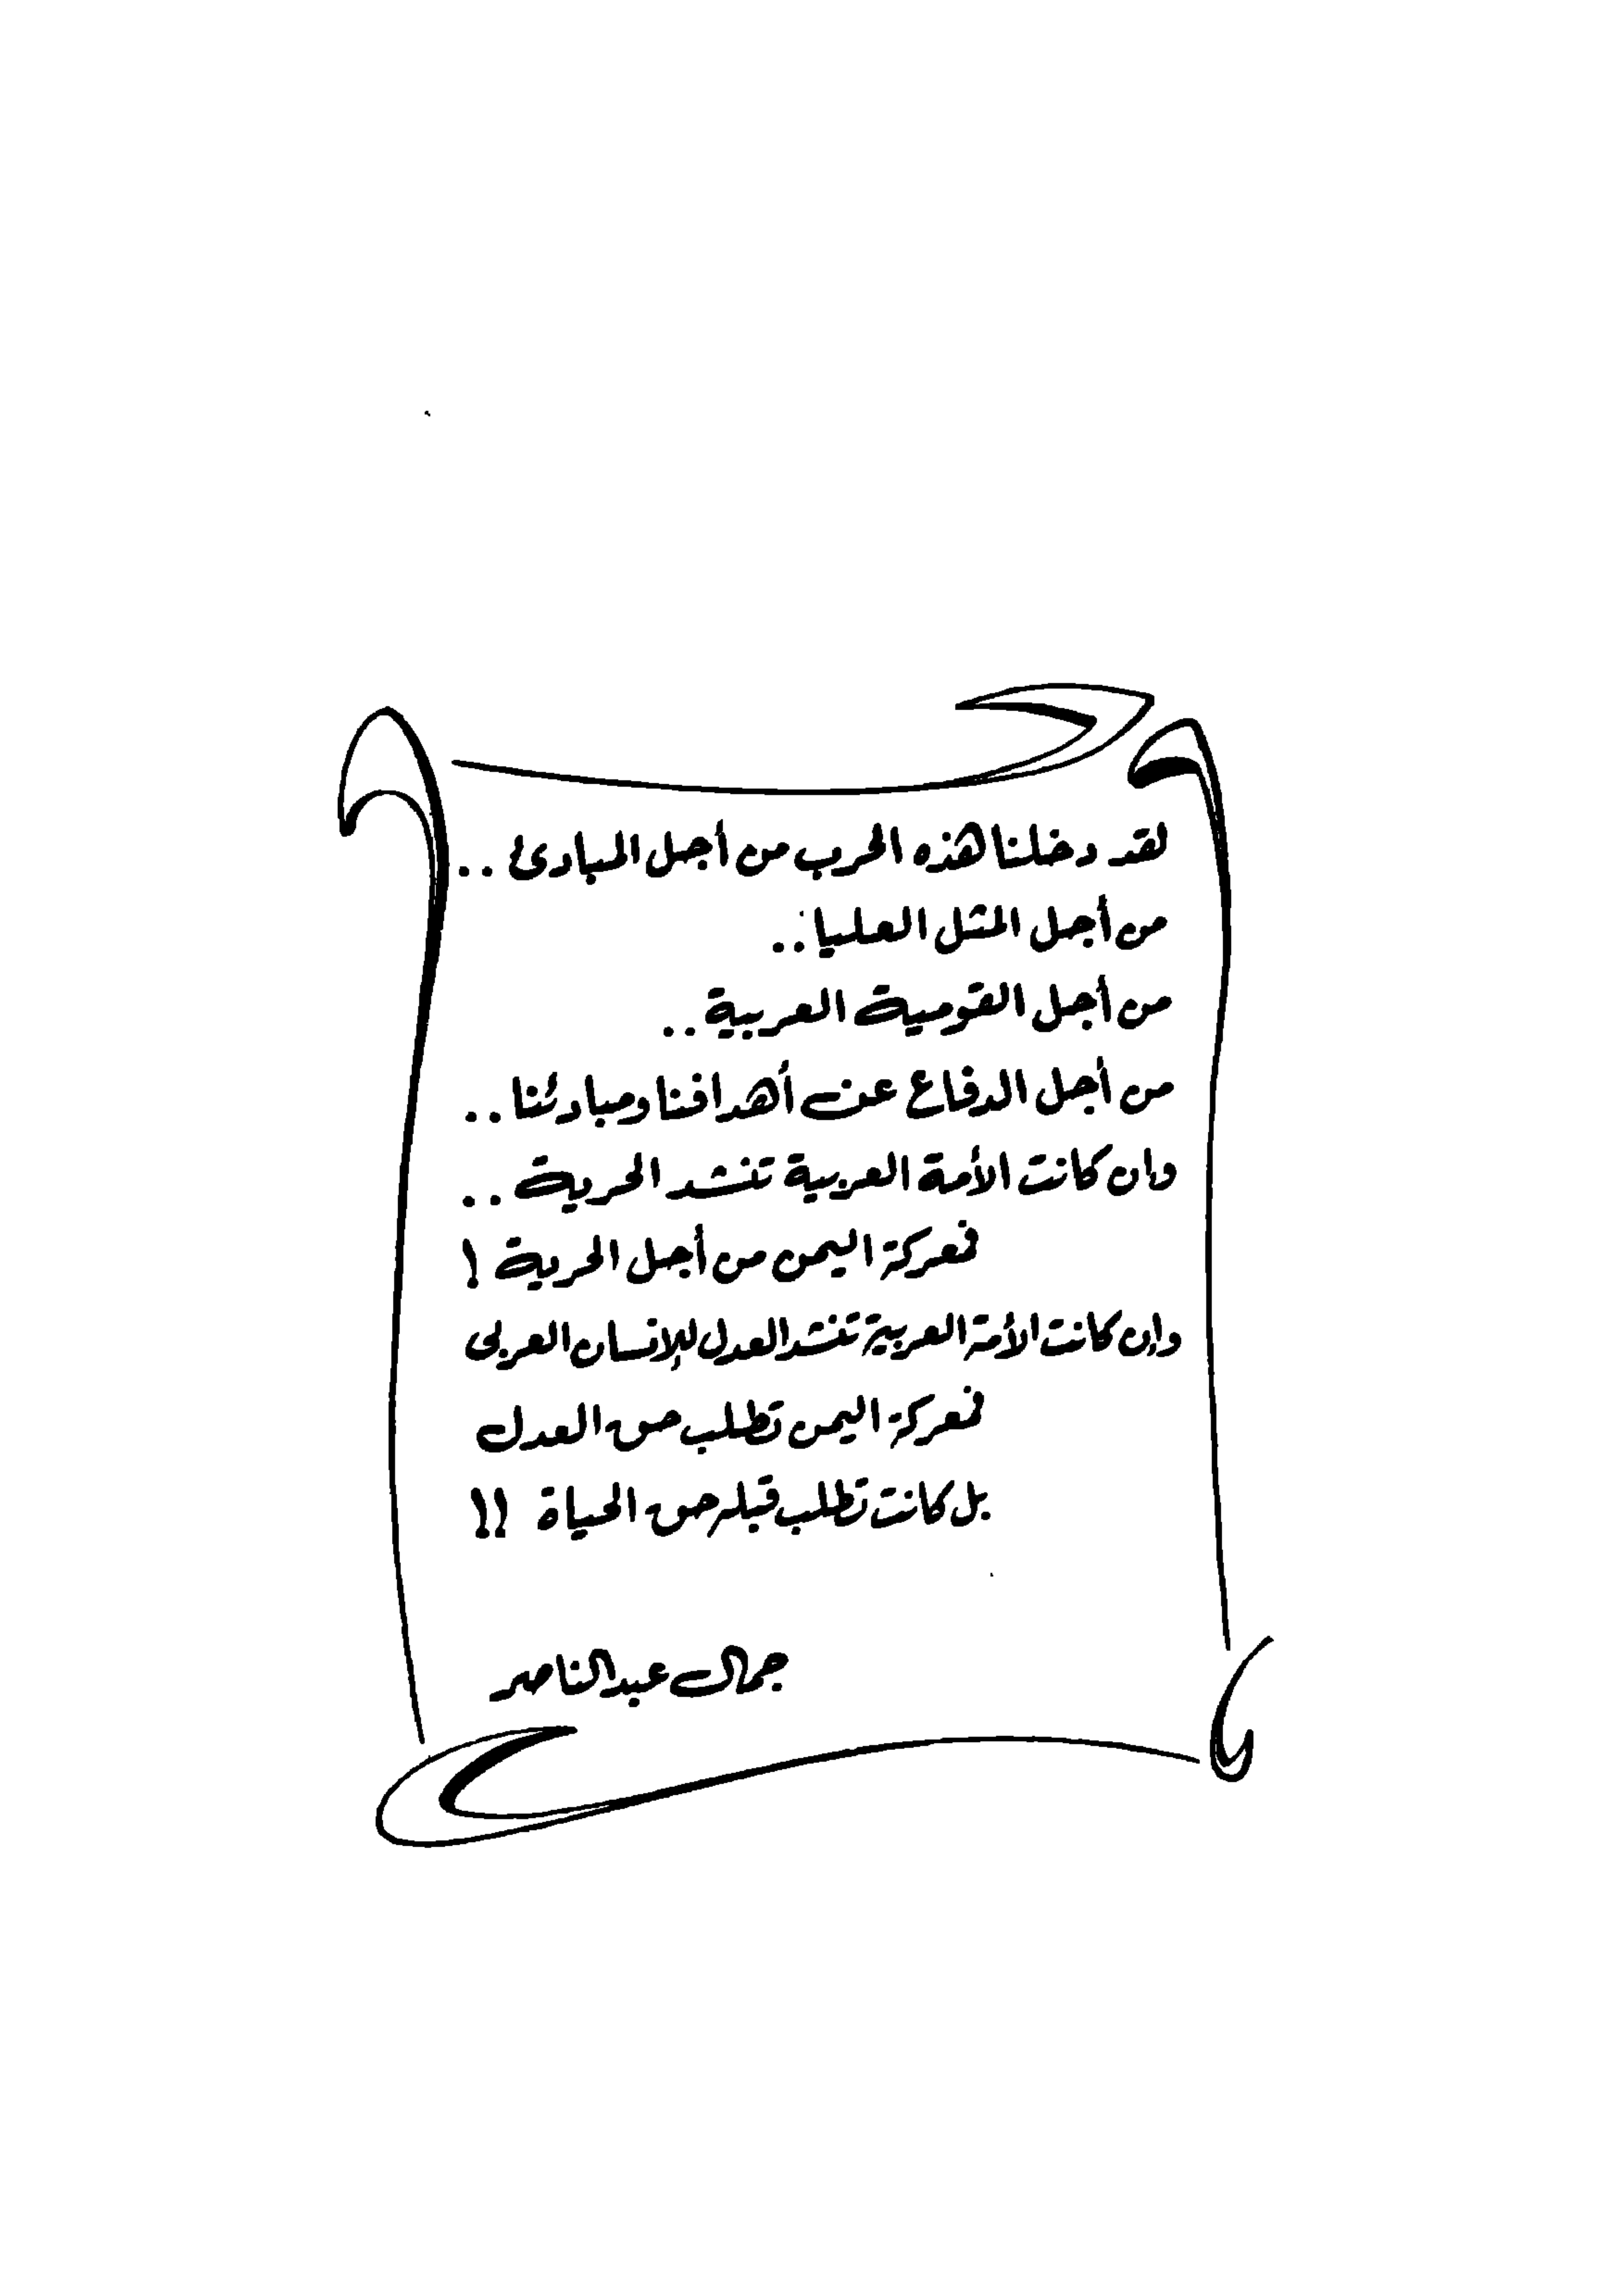 لقد دخلنا هذه الحرب من أجل المبادئ ..
من أجل المثل العليا ..
من أجل القومية العربية ..
من أجل الدفاع عن أهدافنا ومبادئنا ..
وان كانت الأمة العربية تنشد الحرية ..
فمعركة اليمن من أجل الحرية !
وإن كانت الأمة العربية تنشد العدل للإنسان العربى
فمعركة اليمن تطلب حق العدل
بل كانت تطلب قبله حق الحياة !!
جمال عبد الناصر